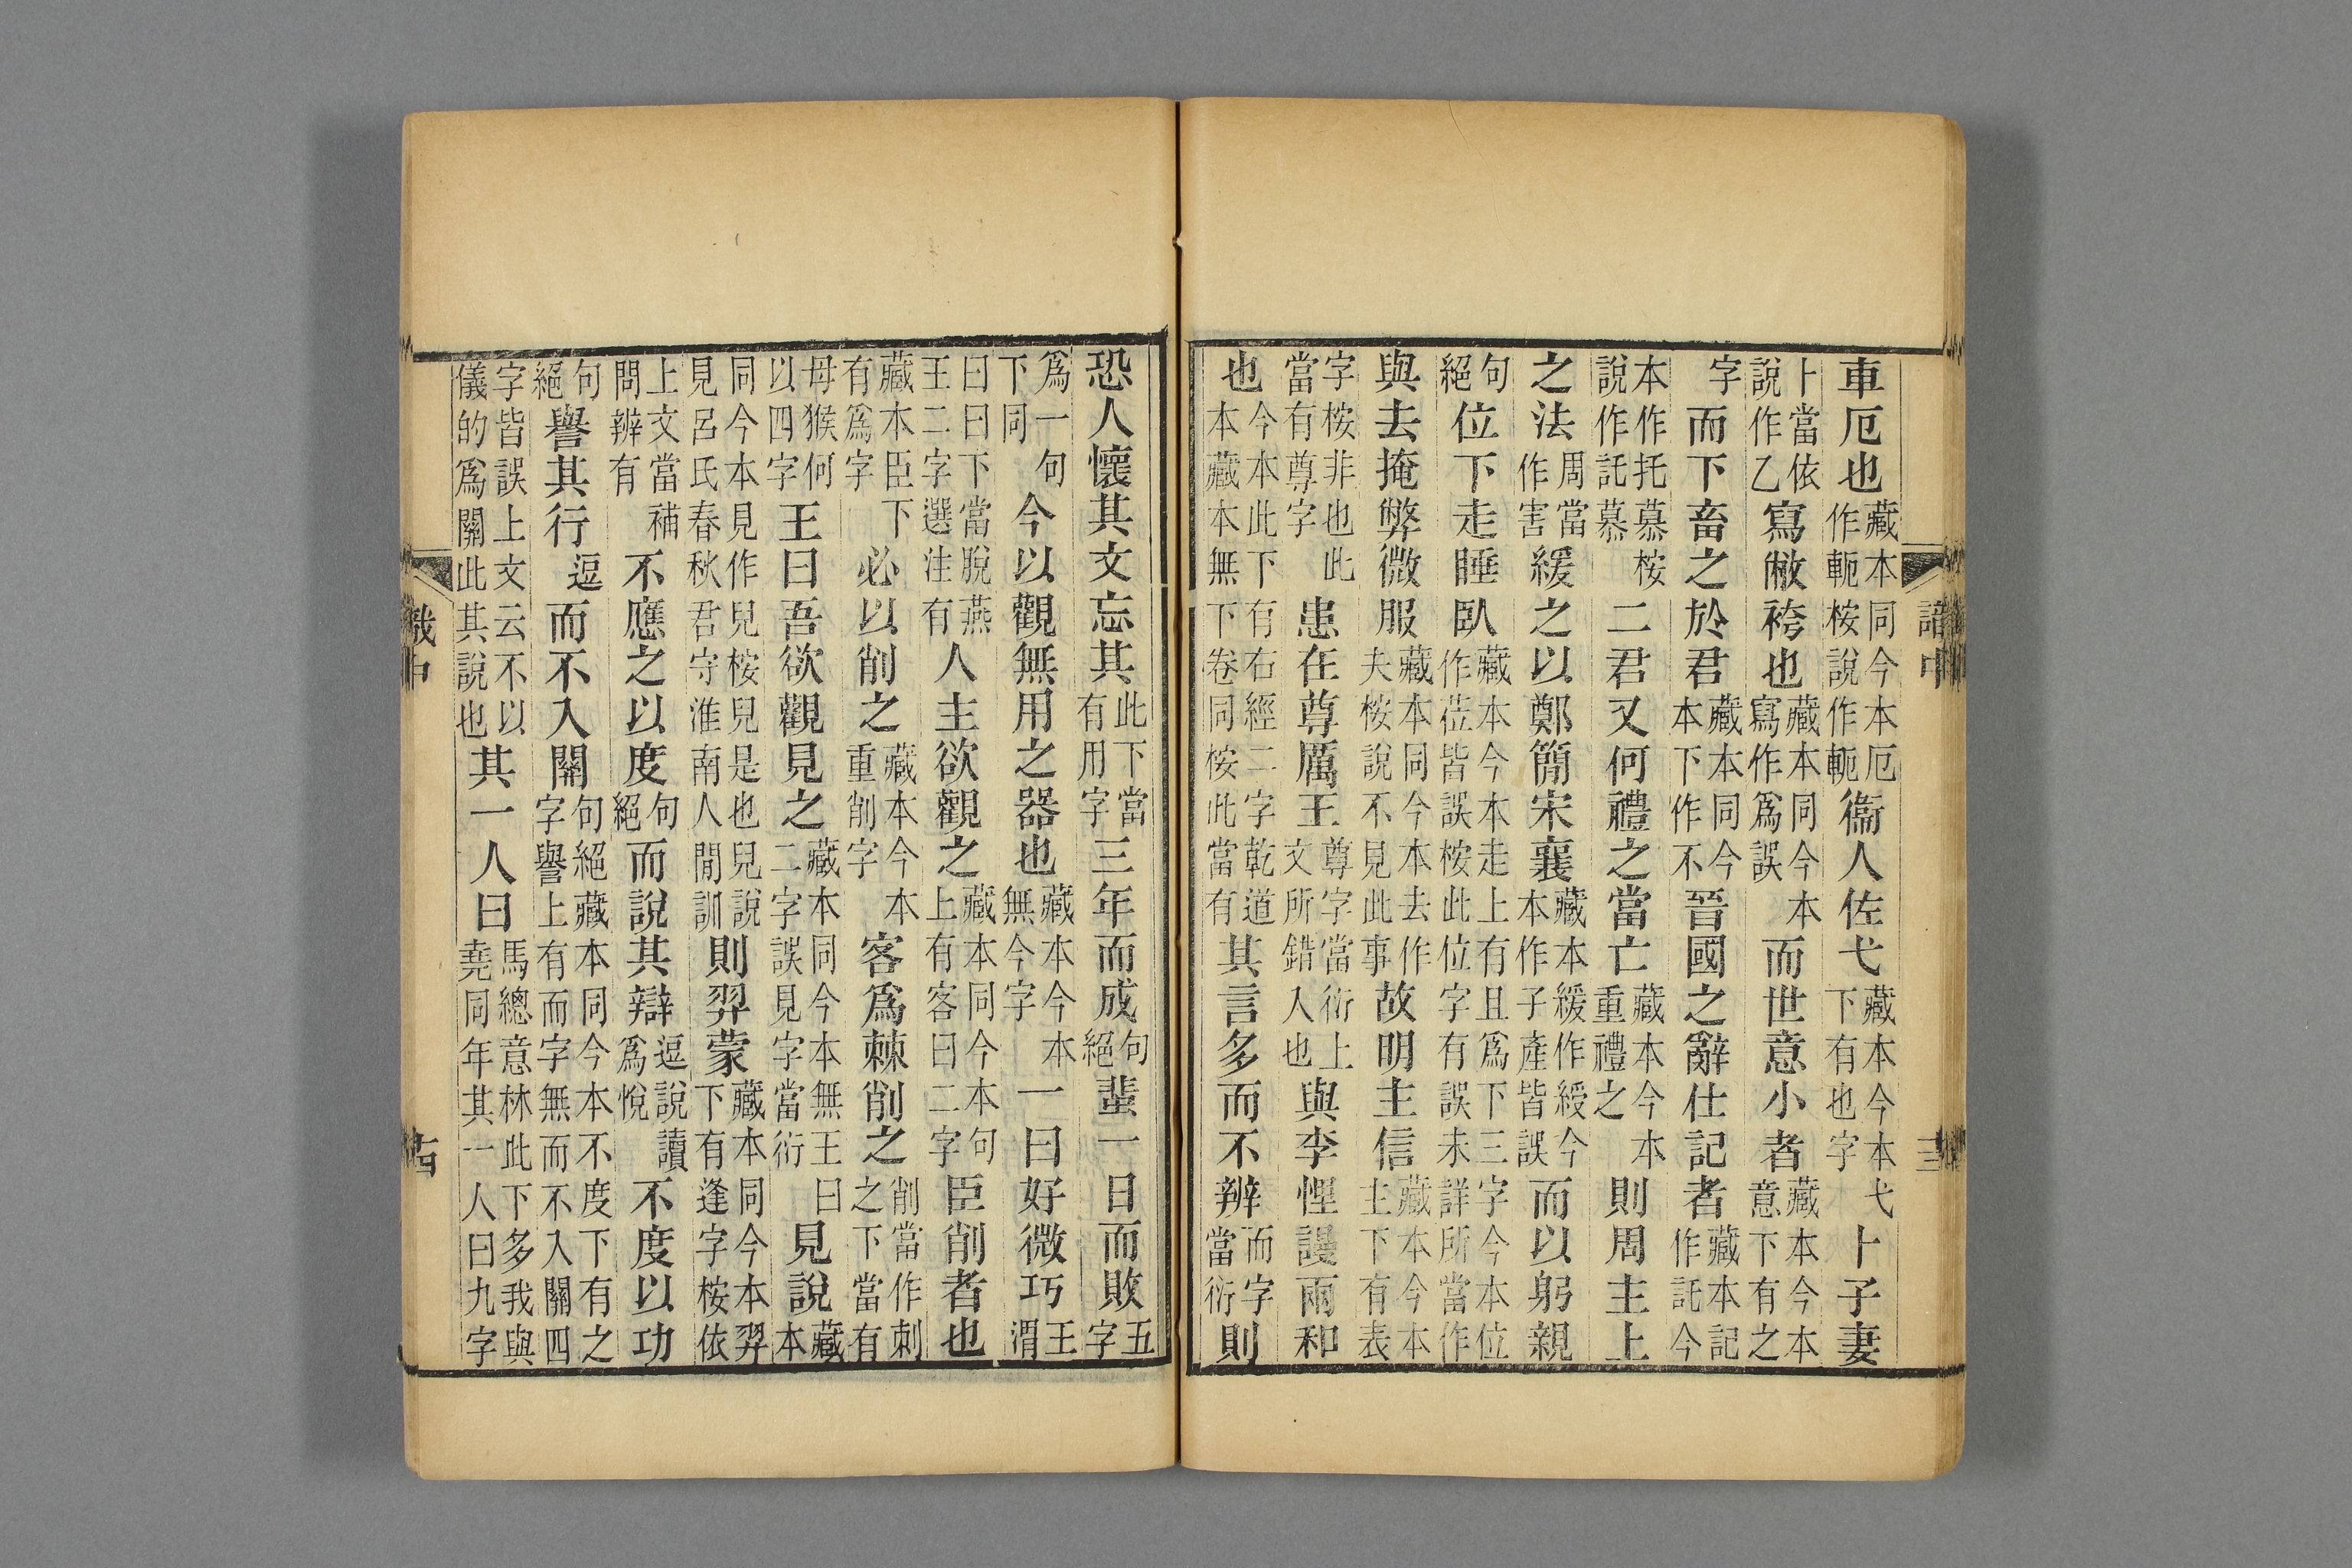 車厄也藏本同今本厄作軛桉說作軛衞人佐弋藏本今本弋下有也字卜子妻
卜當依說作乙寫敝袴也藏本同今本寫作爲誤而世意小者藏本今本意下有之
字而下畜之於君藏本同今本下作不晉國之辭仕記者藏本記作託今
本作托慕桉說作託慕二君又何禮之當亡藏本今本重禮之則周主上
之法周當作害緩之以鄭簡宋襄藏本緩作綬今本作子產皆誤而以躬親
句絕位下走睡臥藏本今本走上有且爲下三字今本位作莅皆誤桉此位字有誤未詳所當作
與去掩弊微服藏本同今本去作夫桉說不見此事故明主信藏本今本主下有表
字桉非也此當有尊字患在尊厲王尊字當衍上文所錯入也與李悝謾兩和
也今本此下有右經二字乾道本藏本無下卷同桉此當有其言多而不辨而字當衍則
恐人懷其文忘其此下當有用字三年而成句絕蜚一日而敗五字
爲一句下同今以觀無用之器也藏本今本無今字一曰好微巧王渭
曰曰下當脫燕王二字選注有人主欲觀之藏本同今本句上有客曰二字臣削者也
藏本臣下有爲字必以削之藏本今本重削字客爲棘削之削當作刺之下當有
母猴何以四字王曰吾欲觀見之藏本同今本無王曰二字誤見字當衍見說藏本
同今本見作兒桉兒是也兒說見呂氏春秋君守淮南人閒訓則羿蒙藏本同今本羿下有逢字桉依
上文當補問辨有不應之以度句絕而說其辯逗說讀爲悅不度以功
句絕譽其行逗而不入關句絕藏本同今本不度下有之字譽上有而字無而不入關四
字皆誤上文云不以儀的爲關此其說也其一人曰馬總意林此下多我與堯同年其一人曰九字